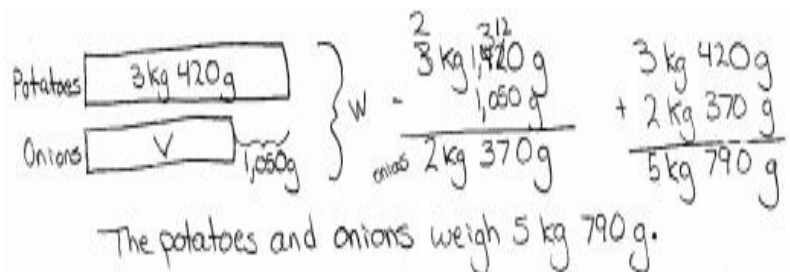 Potatoes 3 kg 420 g
Onions V 1,050 g
W
2 3 12
3 kg 1,420 g
- 1,050 g
onions 2 kg 370 g
3 kg 420 g
+ 2 kg 370 g
5 kg 790 g
The potatoes and onions weigh 5 kg 790 g.